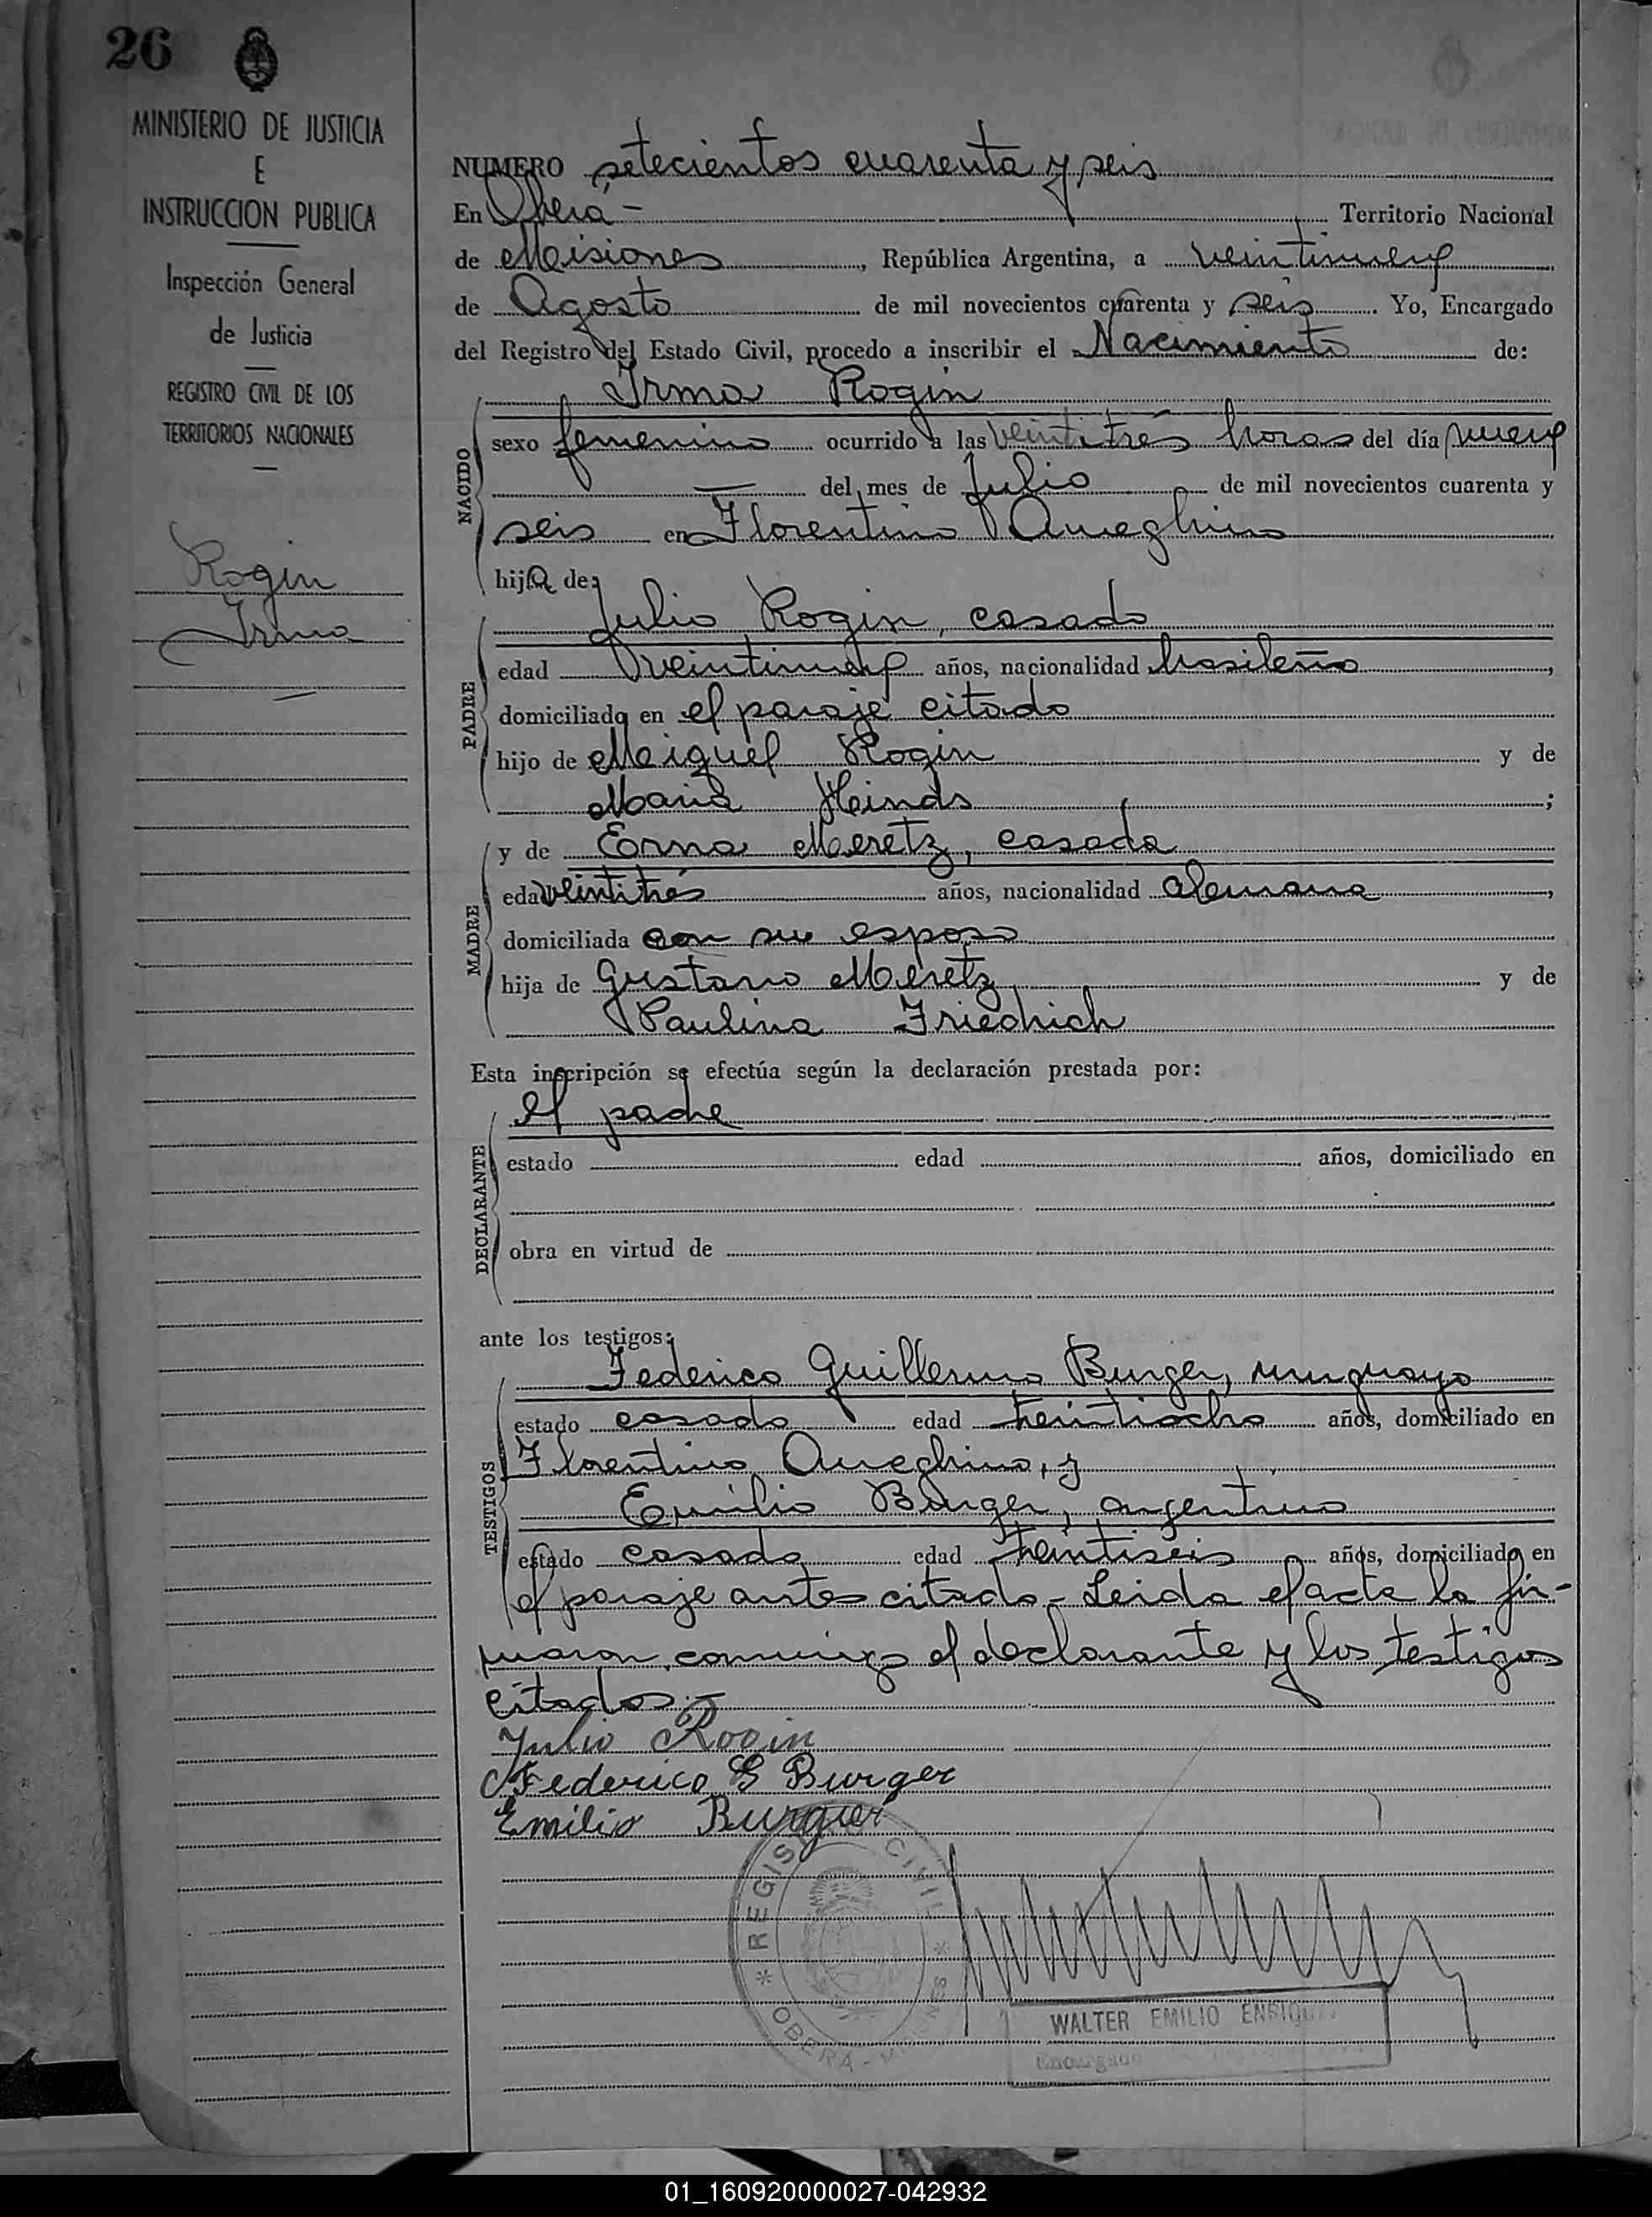 26
MINISTERIO DE JUSTICIA
E
INSTRUCCION PUBLICA
Inspección General
de Justicia
REGISTRO CIVIL DE LOS
TERRITORIOS NACIONALES
Rogin
Irma
NUMERO setecientos cuarenta y seis
En Oberá - Territorio Nacional
de Misiones, República Argentina, a veintinueve
de Agosto de mil novecientos cuarenta y seis. Yo, Encargado
del Registro del Estado Civil, procedo a inscribir el Nacimiento de:
NACIDO
Irma Rogin
sexo femenino ocurrido a las veintitrés horas del día nueve
del mes de Julio de mil novecientos cuarenta y
seis en Florentino Ameghino
hija de:
PADRE
Julio Rogin, casado
edad veintinueve años, nacionalidad brasileño,
domiciliado en el paraje citado
hijo de Miguel Rogin y de
María Heinds;
MADRE
y de Erna Meretz, casada
edad veintitrés años, nacionalidad alemana,
domiciliada con su esposo
hija de Gustavo Meretz y de
Paulina Friedrich
Esta inscripción se efectúa según la declaración prestada por:
DECLARANTE
el padre
estado edad años, domiciliado en
obra en virtud de
ante los testigos:
TESTIGOS
Federico Guillermo Burger, uruguayo
estado casado edad treintiocho años, domiciliado en
Florentino Ameghino, y
Emilio Burger, argentino
estado casado edad treintiseis años, domiciliado en
el paraje antes citado - Leida el acta la fir-
maron conmigo el declarante y los testigos
citados.-
Julio Rogin
Federico G Burger
Emilio Burguer
* REGISTRO CIVIL * OBERA - MISIONES
WALTER EMILIO
Encargado
01_160920000027-042932